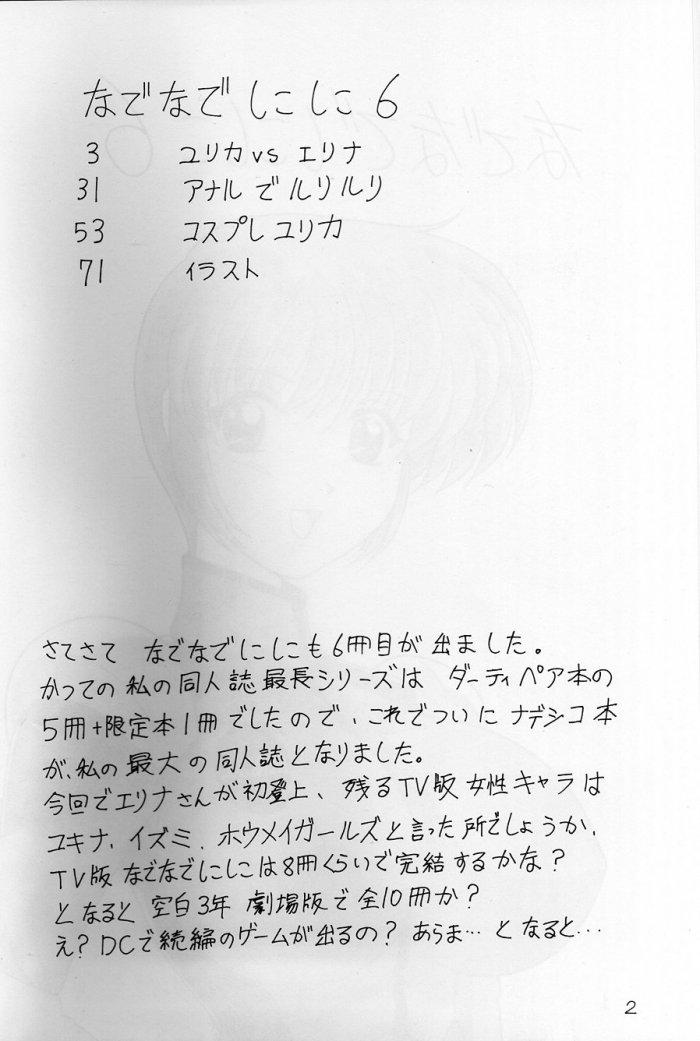 なでなでしこしこ 6
3 ユリカ vs エリナ
31 アナル で ルリルリ
53 コスプレ ユリカ
71 イラスト
さてさて なでなでにしこも 6冊目が 出ました。
かっての 私の同人誌 最長シリーズは ダーティペア本の
5冊+限定本1冊でしたので、これでついに ナデシコ本
が、私の最大の同人誌となりました。
今回でエリナさんが初登上、残るTV版女性キャラは
ユキナ、イズミ、ホウメイガールズと言った所でしょうか、
TV版 なでなでにしこは8冊くらいで完結するかな?
となると 空白3年 劇場版で全10冊か?
え? DCで続編のゲームが出るの? あらま… となると…
2